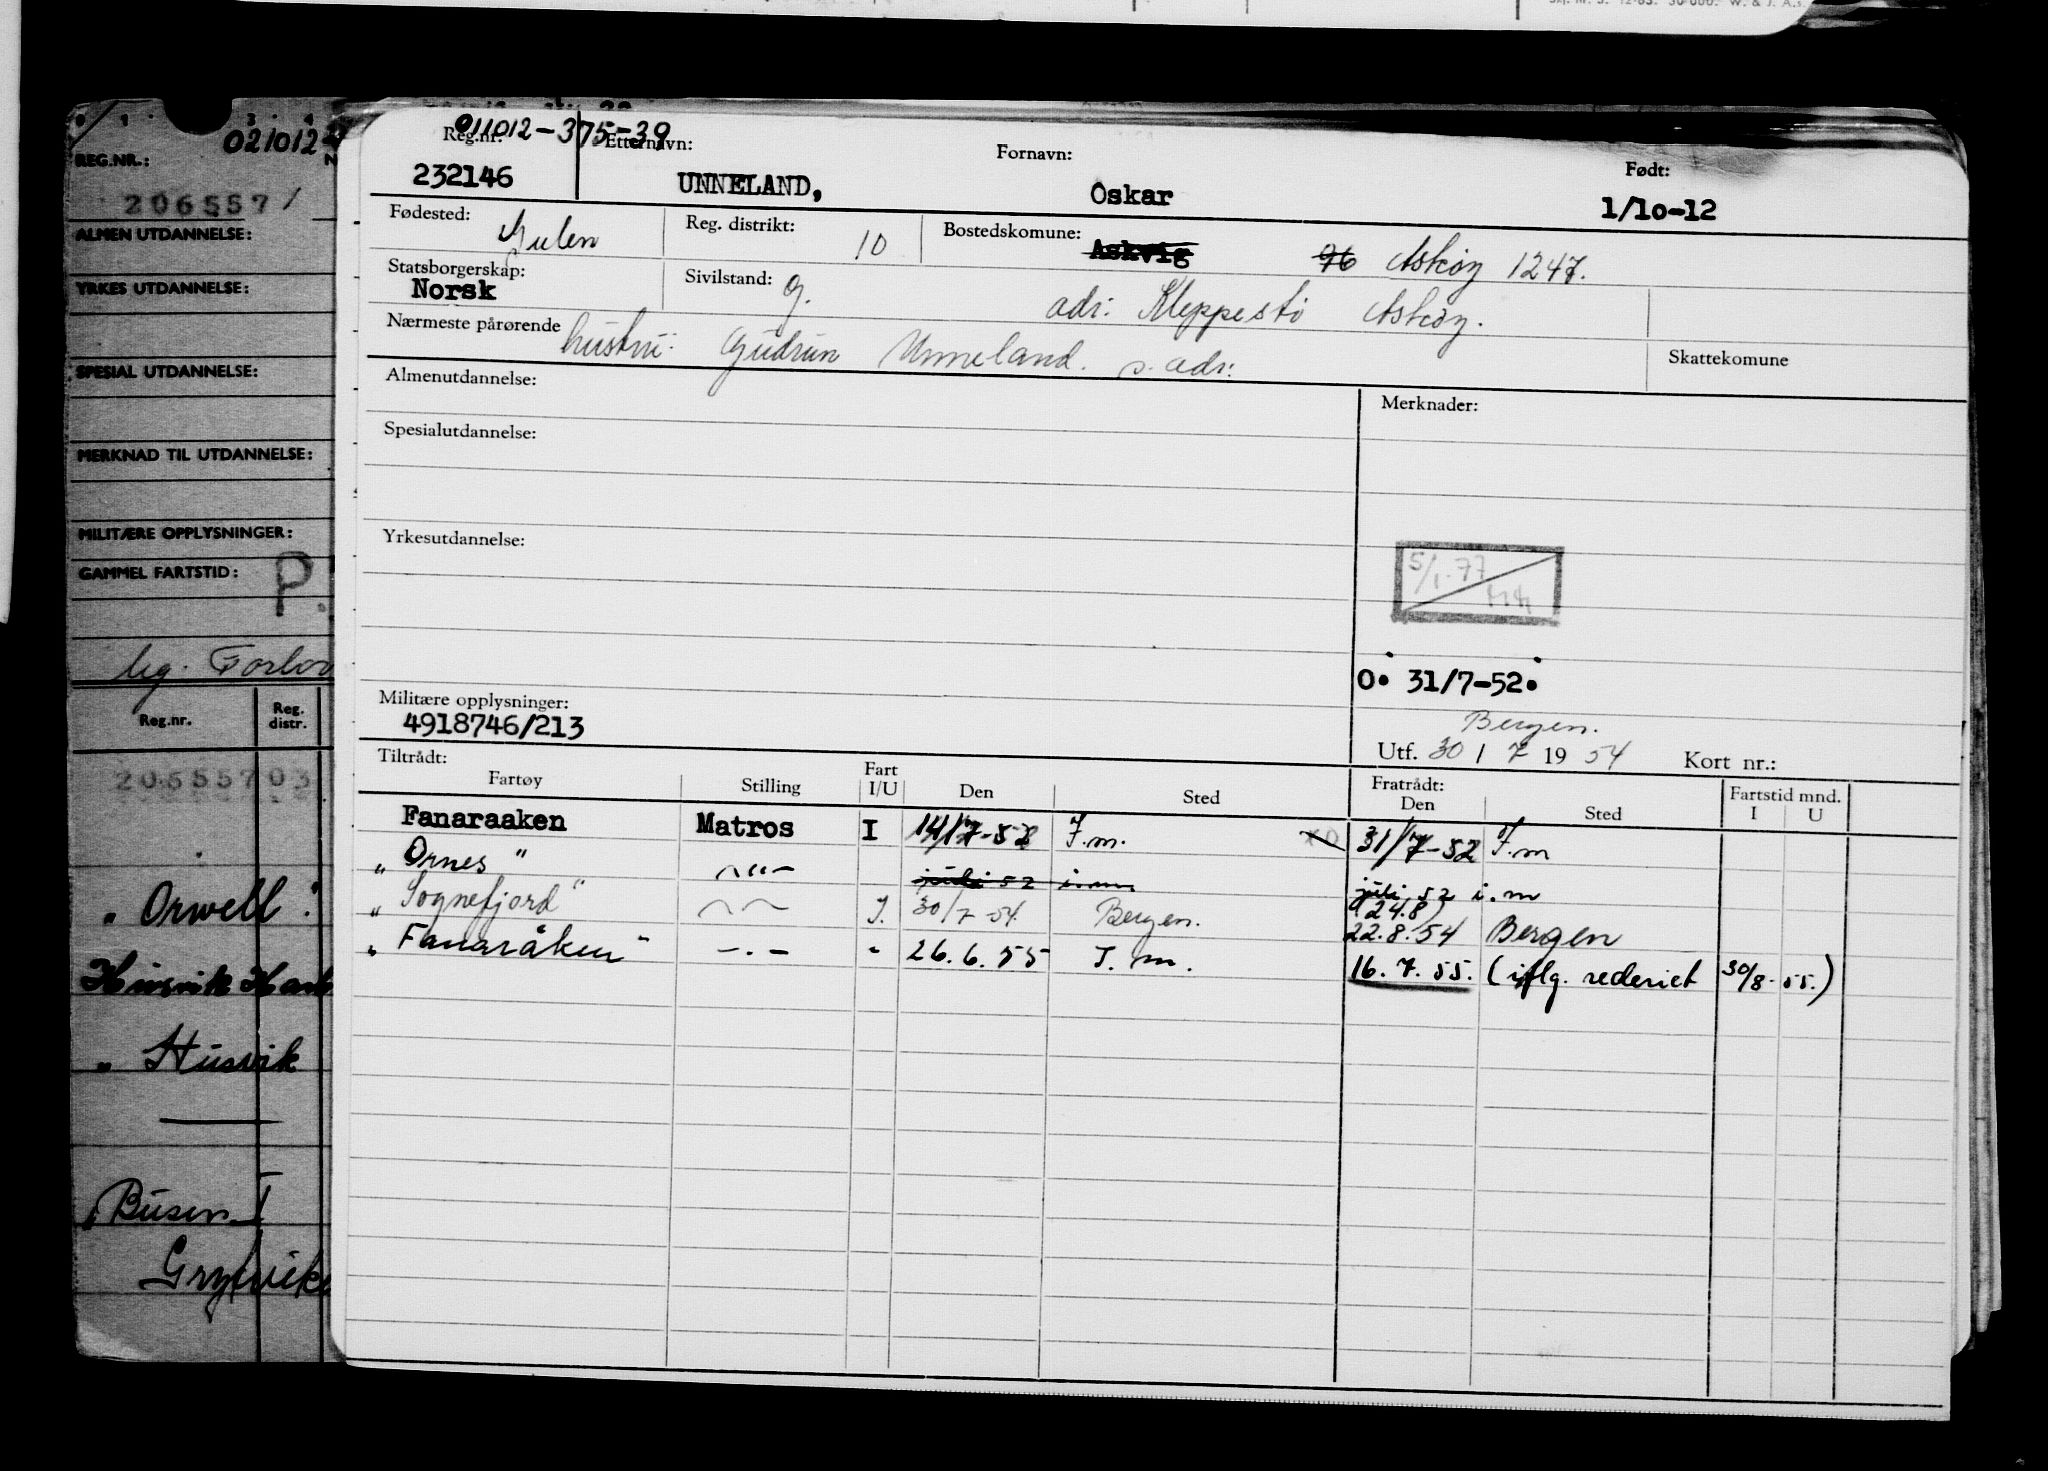 Skj. nr. 5. 12-63. 30 000. W. & J. A.s.
021012
REG.NR.:
206557/
ALMEN UTDANNELSE:
YRKES UTDANNELSE:
SPESIAL UTDANNELSE:
MERKNAD TIL UTDANNELSE:
MILITÆRE OPPLYSNINGER:
GAMMEL FARTSTID: P.
Reg.nr. Reg. distr.
206557 03
"Orwell".
" Husvik
Busen I
011012-375-39
Reg.nr. Etternavn: Fornavn: Født:
232146 UNNELAND, Oskar 1/10-12
Fødested: Gulen Reg. distrikt: 10 Bostedskomune: Askvig 96 Askøy 1247.
Statsborgerskap: Norsk Sivilstand: g. adr: Kleppestö Askøy.
Nærmeste pårørende hustru: Gudrun Unneland. s. adr: Skattekomune
Almenutdannelse: Merknader:
Spesialutdannelse:
Yrkesutdannelse:
5/1.77
O. 31/7-52.
Militære opplysninger:
4918746/213
Bergen.
Utf. 30 / 7 19 54 Kort nr.:
Tiltrådt: Fratrådt:
Fartøy Stilling Fart I/U Den Sted Den Sted Fartstid mnd. I U
Fanaraaken Matros I 14/7-52 I.m. 31/7-52 I.m
"Ornes" -"- juli 52 i.m juli 52 i.m
(24.8)
"Sognefjord" I. 30/7-54 Bergen. 22.8.54 Bergen
"Fanaråken" -.- " 26.6.55 I.m. 16.7.55. (iflg. rederiet 30/8-55.)